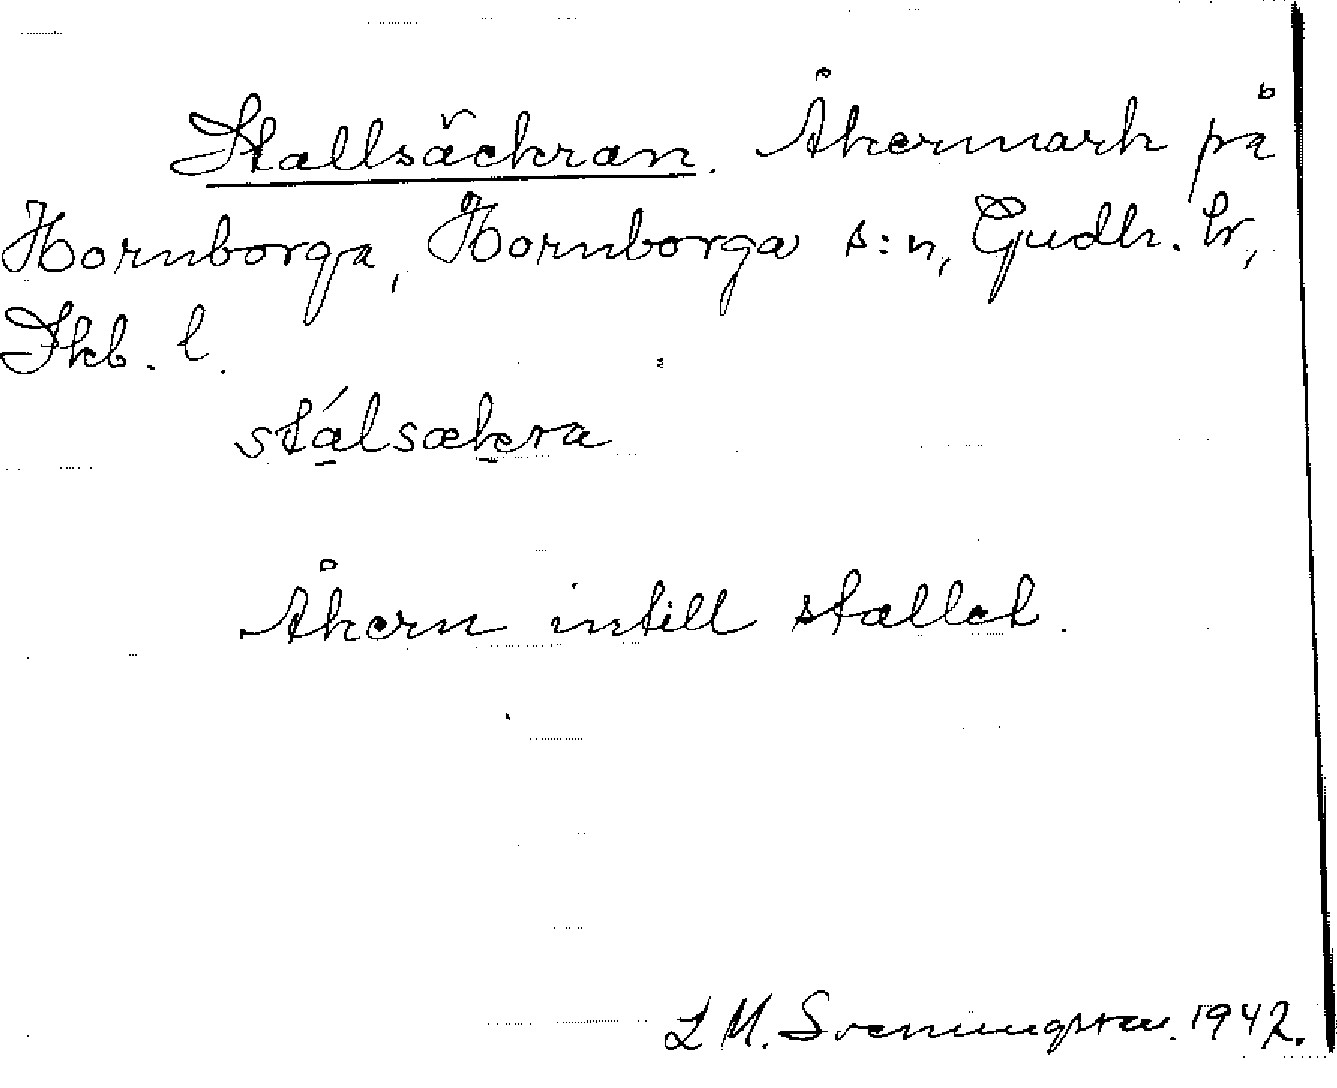 Stallsäckran. Åkermark på
Hornborga, Hornborga s:n, Gudh. hr,
Skb. l.
stálsækra
Åkern intill stallet.
L M. Svenungsson. 1942.